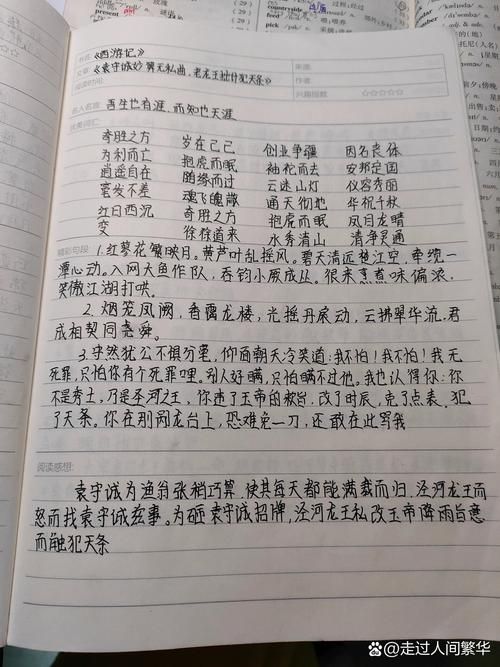 书名:《西游记》
文章:《袁守诚妙算无私曲,老龙王拙计犯天条》
来源:
阅读时间:
作者:
兴趣指数: ☆☆☆☆☆
名人名言: 吾生也有涯,而知也无涯
优美词汇:
奇胜之方 岁在己已 创业争疆 因名丧体
为利而亡 抱虎而眠 袖蛇而去 安邦定国
逍遥自在 随缘而过 云迷山灯 仪容秀丽
毫发不差 魂飞魄散 通天彻地 华祝千秋
红日西沉 奇胜之方 抱虎而眠 凤目龙睛
变 徐徐道来 水秀清山 清净灵通
精彩句段: 1.红蓼花繁映月。黄芦叶乱摇风。碧天清远楚江空,牵缆一
潭心动。入网大鱼作队,吞钩小鳜成丛。很来烹煮味偏浓,
笑傲江湖打哄。
2. 烟笼凤阙,香霭龙楼,光摇丹扆动,云拂翠华流,君
成相契同尧舜。
3.守然犹公不惧分毫,仰面朝天冷笑道:我不怕!我不怕!我无
死罪,只怕你有个死罪哩。别人好瞒,只怕瞒不过他。我也认得你:你
不是秀士,乃是泾河之王,你违了玉帝的敕旨,改了时辰,克了点表。犯
了天条。你在那剐龙台上,恐难免一刀,还敢在此骂我
阅读感想:
袁守诚为渔翁张梢巧算,使其每天都能满载而归,泾河龙王而
怒而找袁守诚兹事。为砸袁守诚招牌,泾河龙王私改玉帝降雨旨意
而触犯天条
countryside
present
feed
pick
(29)
走过人间繁华